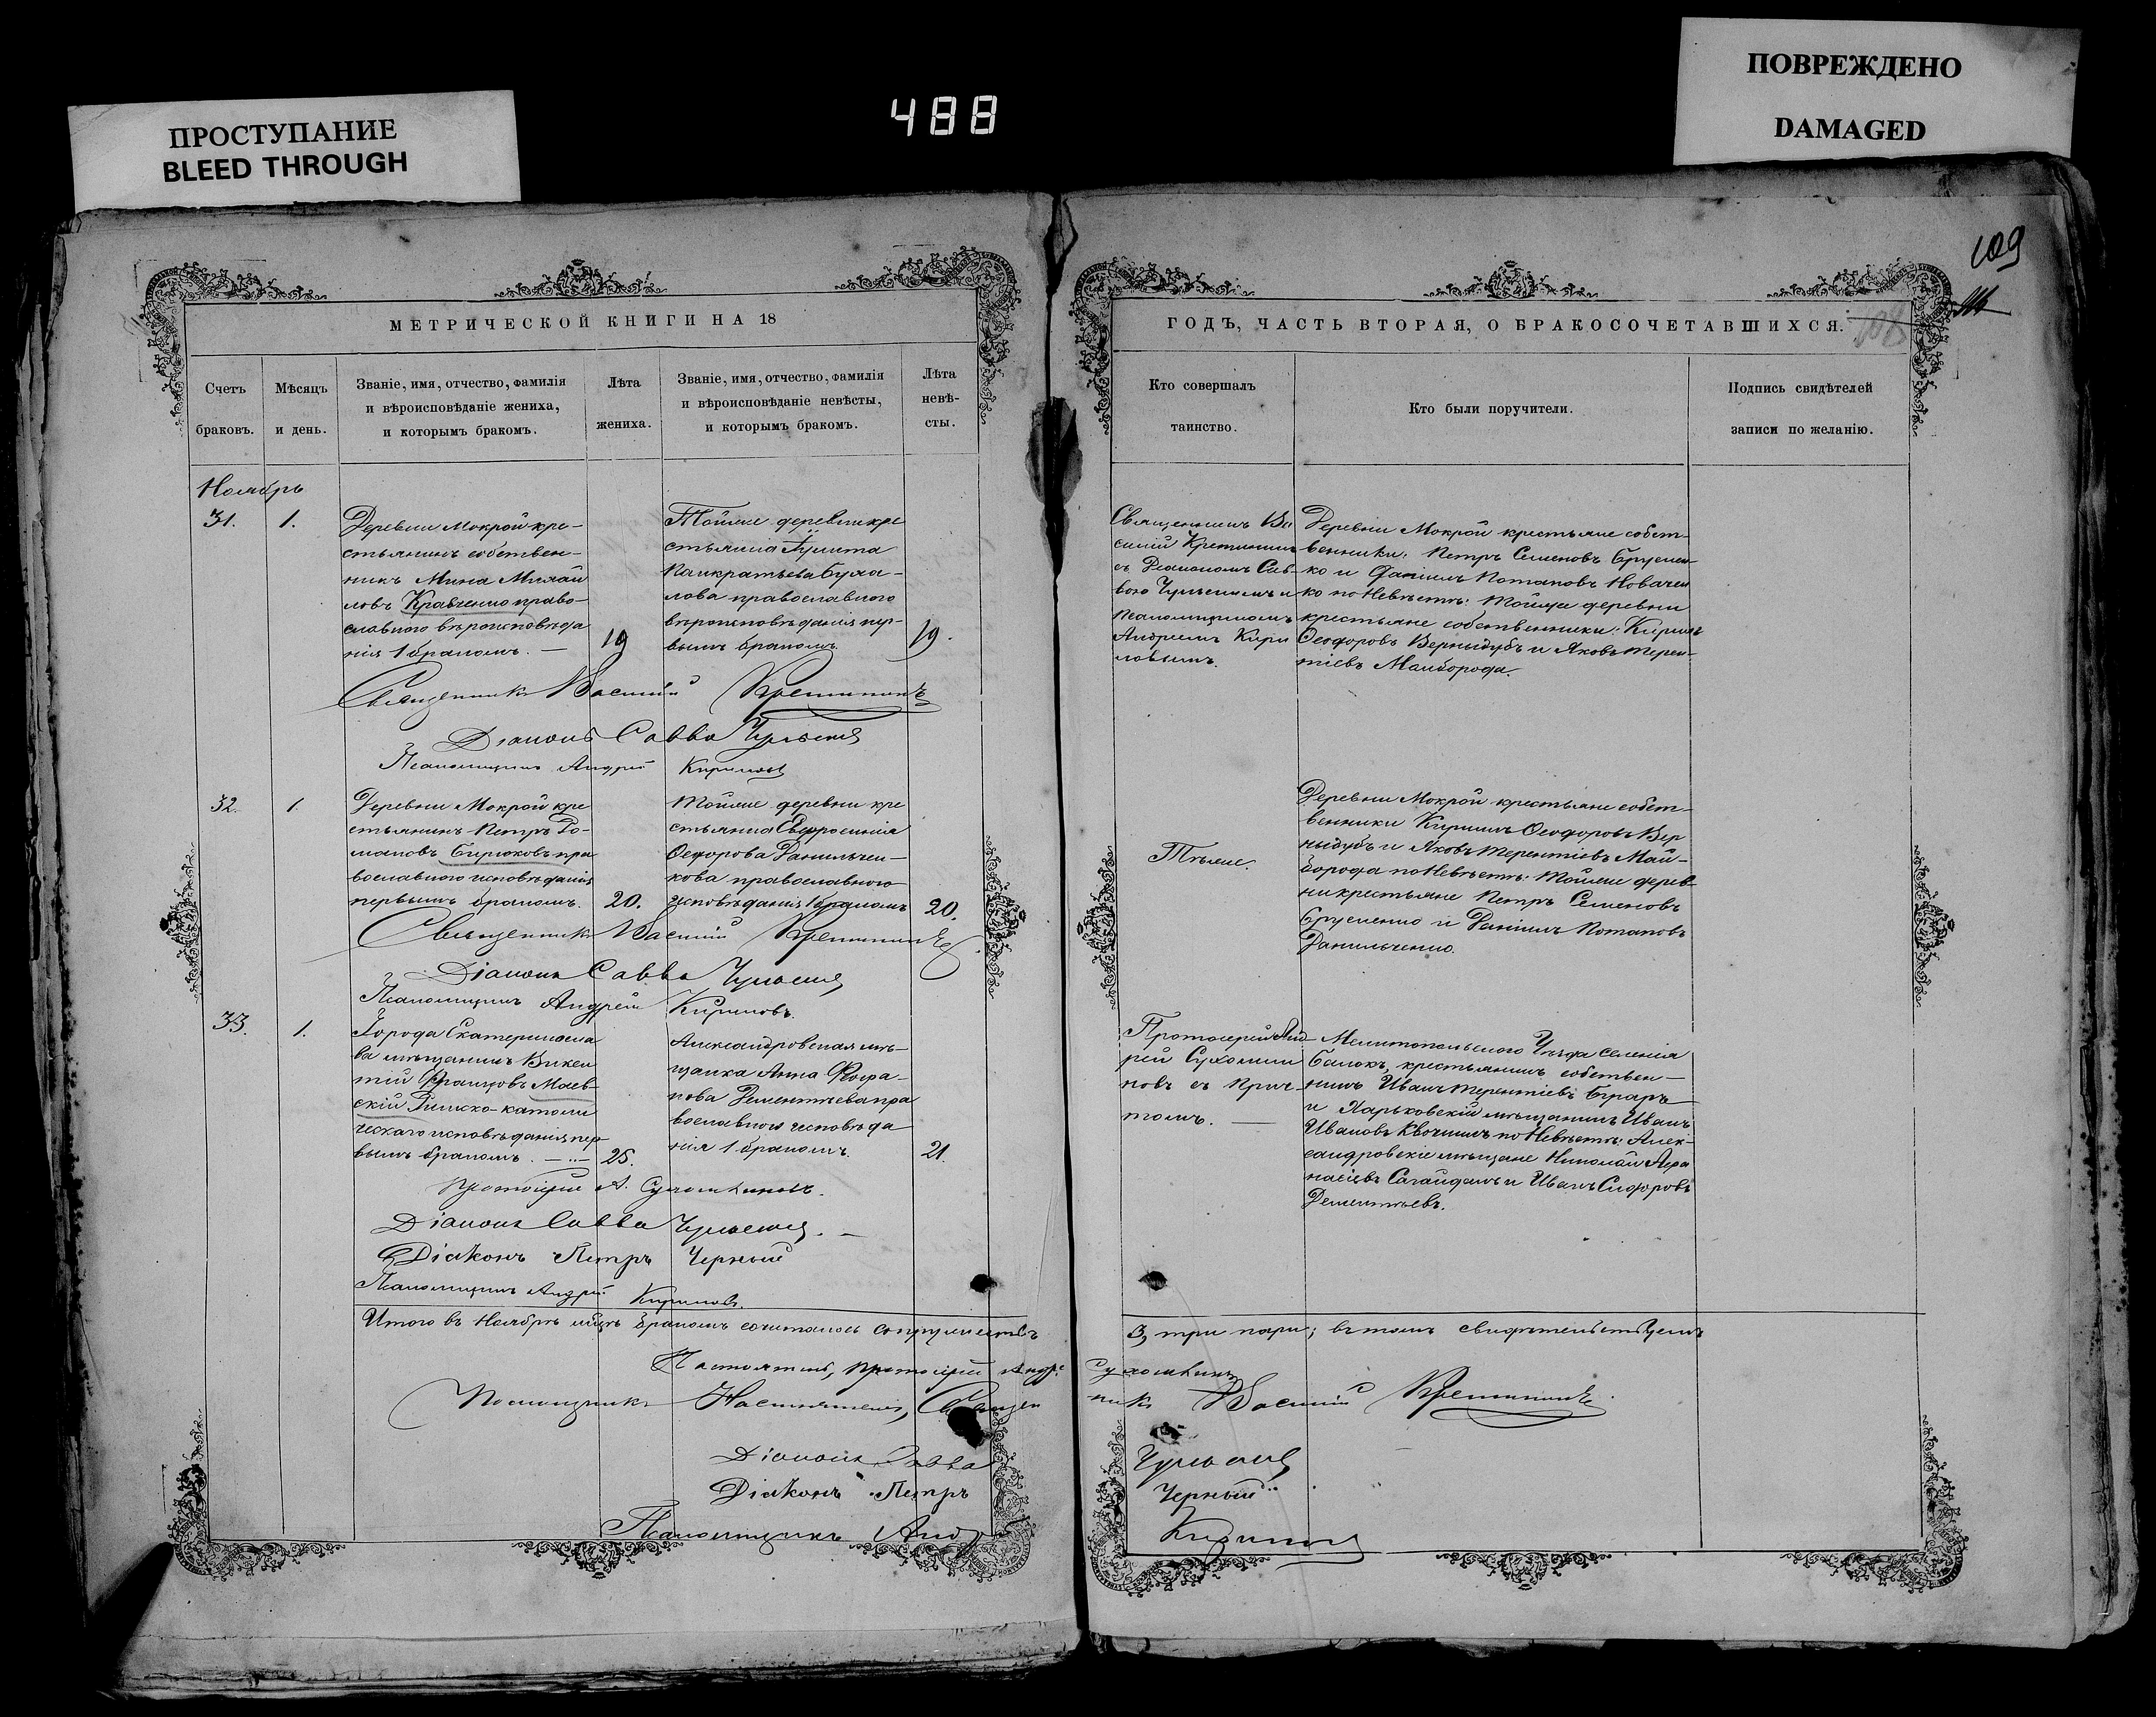 ПРОСТУПАНИЕ
BLEED THROUGH
488
ПОВРЕЖДЕНО
DAMAGED
109
108
МЕТРИЧЕСКОЙ КНИГИ НА 18
Счетъ
браковъ.
Мѣсяцъ
и день.
Званіе, имя, отчество, фамилія
и вѣроисповѣданіе жениха,
и которымъ бракомъ.
Лѣта
жениха.
Званіе, имя, отчество, фамилія
и вѣроисповѣданіе невѣсты,
и которымъ бракомъ.
Лѣта
невѣ-
сты.
Ноябрь
31.
1.
Деревни Мокрой кре-
стьянинъ собствен-
никъ Мина Михай
ловъ Кравченко право-
славного вѣроисповѣда
нія 1 бракомъ. —
19
Тойже деревни кре
стьянка
Панкратьева
православного
вѣроисповѣданія пер-
вымъ бракомъ.
19.
Священникъ Василій Кремянинъ
Діаконъ Савва
Псаломщикъ Андрей Кириловъ
32.
1.
Деревни Мокрой кре
стьянинъ Петръ Ро-
мановъ Бирюковъ пра
вославного исповѣданія
первымъ бракомъ.
20.
Тойже деревни кре
стьянка Евфросинія
Ѳеодорова Данильчен-
кова православного
исповѣданія 1 бракомъ
20.
Священникъ Василій
Діаконъ Савва
Псаломщикъ Андрей Кириловъ.
33.
1.
Города Екатериносла
ва мѣщанинъ Викен
тій Францовъ Маев-
скій Римско-католи
ческаго исповѣданія пер
вымъ бракомъ. —
25.
Александровская мѣ-
щанка Анна
Дементьева пра
вославного исповѣда
нія 1 бракомъ.
21.
Протоіерей А. Сухомлиновъ.
Діаконъ Савва
Діаконъ Петръ Черный
Псаломщикъ Андрей Кириловъ.
Итого въ Ноябрѣ м-цѣ бракомъ сочеталось
Настоятель, протоіерей Андр.
Помощникъ Настоятеля, Священ
Діаконъ Савва
Діаконъ Петръ
Псаломщикъ Анд
ГОДЪ, ЧАСТЬ ВТОРАЯ, О БРАКОСОЧЕТАВШИХСЯ.
Кто совершалъ
таинство.
Кто были поручители.
Подпись свидѣтелей
записи по желанію.
Священникъ Ва
силій
съ Діакономъ Сав-
вою и
псаломщикомъ
Андреемъ Кири
ловымъ.
Деревни Мокрой крестьяне собст-
венники: Петръ Семеновъ Брусен-
ко и Даніилъ Потаповъ
по Невѣстѣ: тойже деревни
крестьяне собственники: Кирилъ
Ѳеодоровъ Вернидубъ и Яковъ Терен-
тіевъ Майборода.
Тѣже.
Деревни Мокрой крестьяне собст-
венники Кирилъ Ѳеодоровъ Вер
нидубъ и Яковъ Терентіевъ Май-
борода по Невѣстѣ: тойже дерев-
ни крестьяне Петръ Семеновъ
Брусенко и Даніилъ Потаповъ
Данильченко.
Протоіерей Анд
рей Сухомли
новъ съ прич-
томъ. —
Мелитопольского Уѣзда селенія
Балокъ, крестьянинъ собствен-
никъ Иванъ Терентіевъ
и Харьковскій мѣщанинъ Иванъ
Ивановъ по Невѣстѣ: Алек-
сандровскіе мѣщане Николай Афа
насіевъ Сагайдакъ и Иванъ Сидоровъ
Дементьевъ.
3, три пары; въ томъ свидѣтельствуемъ
Сухомлиновъ
никъ Василій
Черный
Кирилов